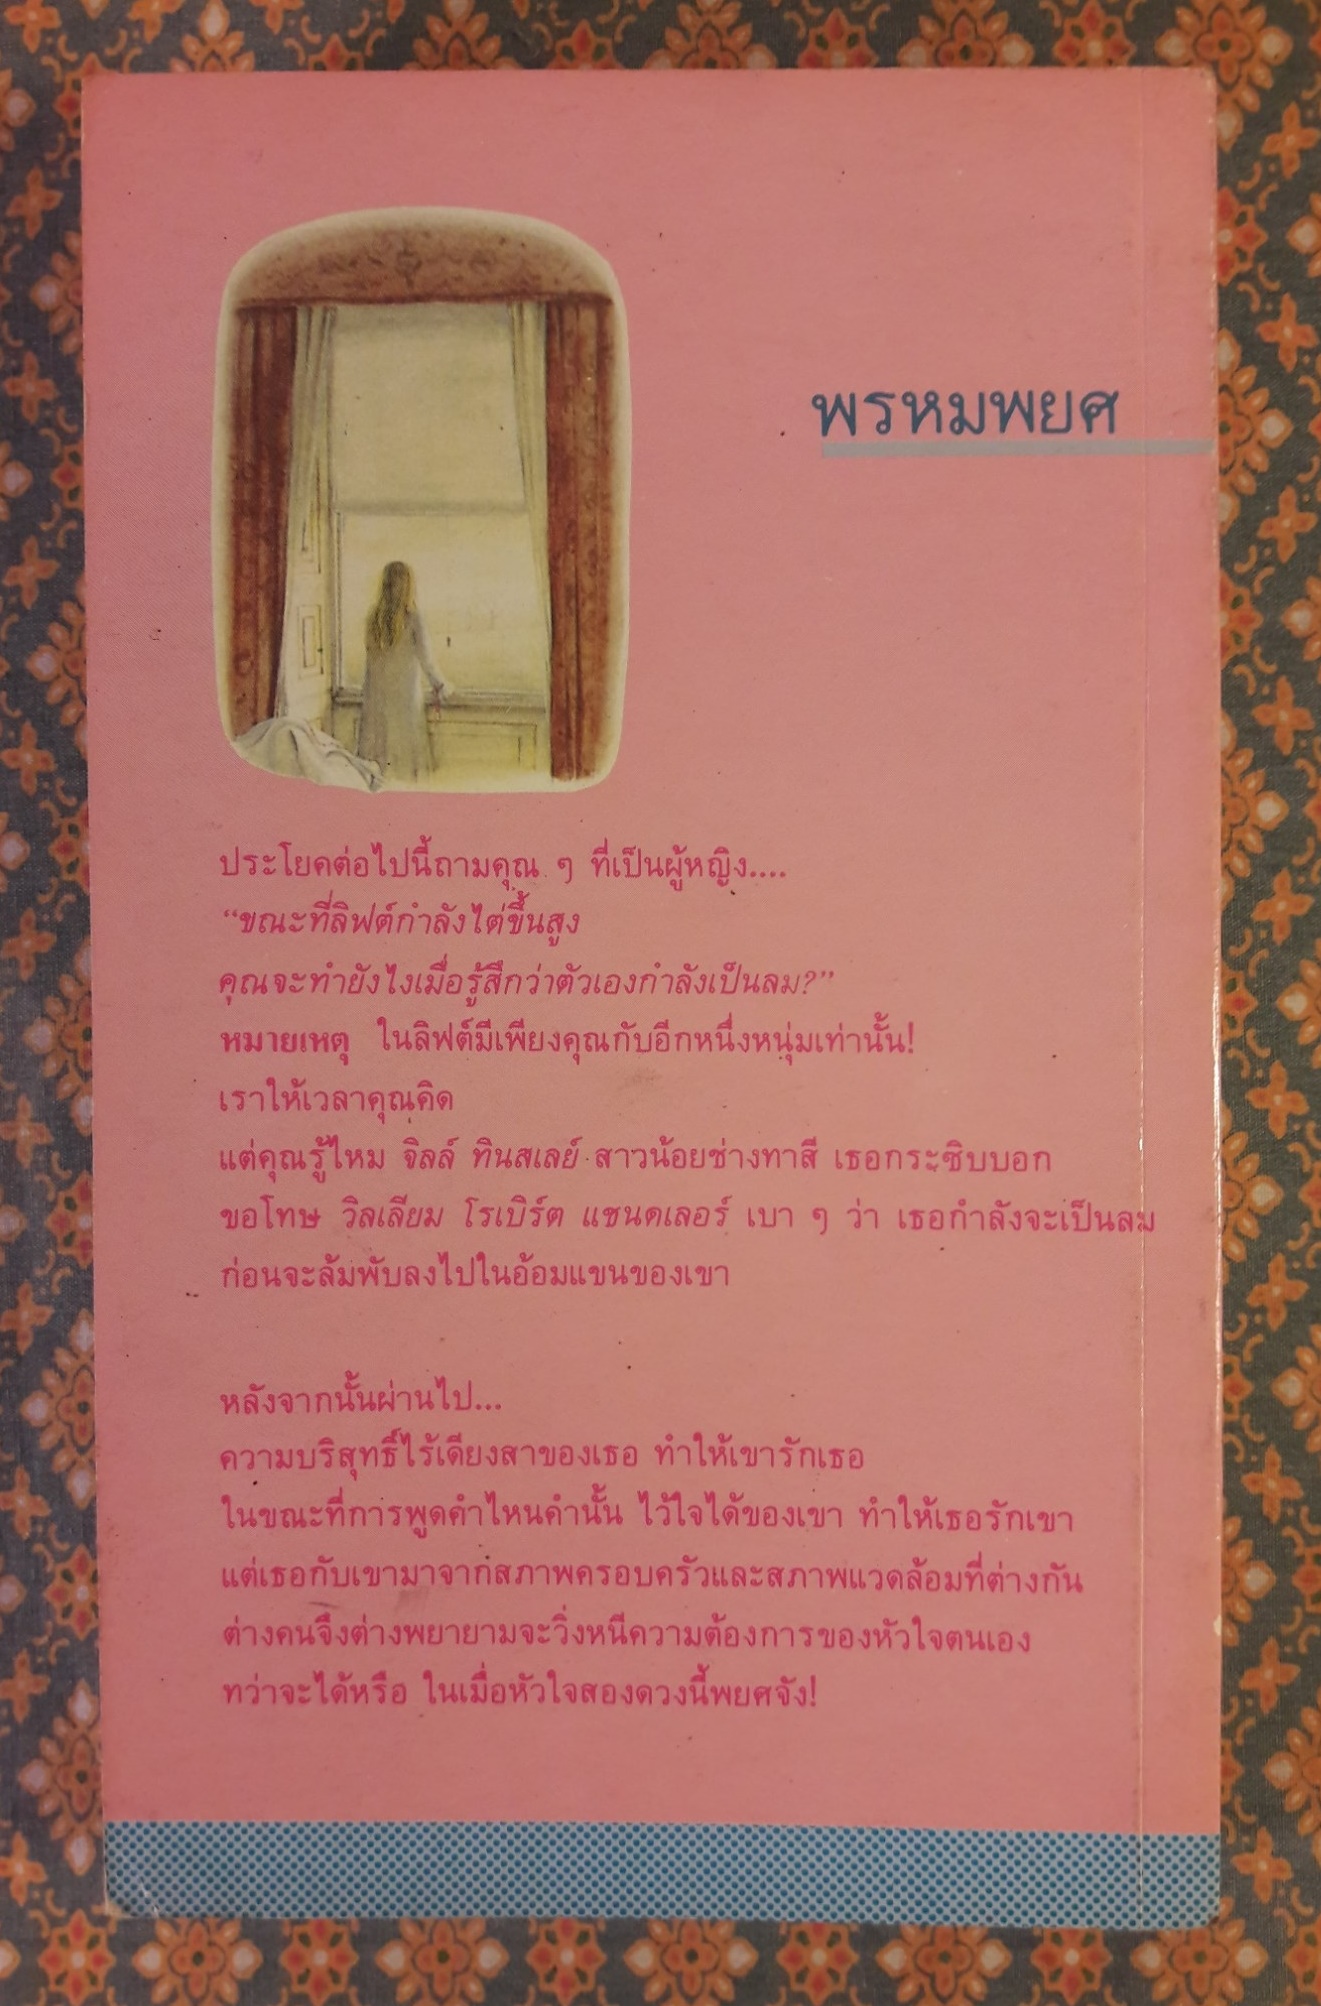 พรหมพยศ
ประโยคต่อไปนี้ถามคุณ ๆ ที่เป็นผู้หญิง....
“ขณะที่ลิฟต์กำลังไต่ขึ้นสูง
คุณจะทำยังไงเมื่อรู้สึกว่าตัวเองกำลังเป็นลม?”
หมายเหตุ ในลิฟต์มีเพียงคุณกับอีกหนึ่งหนุ่มเท่านั้น!
เราให้เวลาคุณคิด
แต่คุณรู้ไหม จิลล์ ทินสเลย์ สาวน้อยช่างทาสี เธอกระซิบบอก
ขอโทษ วิลเลียม โรเบิร์ต แชนดเลอร์ เบา ๆ ว่า เธอกำลังจะเป็นลม
ก่อนจะล้มพับลงไปในอ้อมแขนของเขา
หลังจากนั้นผ่านไป...
ความบริสุทธิ์ไร้เดียงสาของเธอ ทำให้เขารักเธอ
ในขณะที่การพูดคำไหนคำนั้น ไว้ใจได้ของเขา ทำให้เธอรักเขา
แต่เธอกับเขามาจากสภาพครอบครัวและสภาพแวดล้อมที่ต่างกัน
ต่างคนจึงต่างพยายามจะวิ่งหนีความต้องการของหัวใจตนเอง
ทว่าจะได้หรือ ในเมื่อหัวใจสองดวงนี้พยศจัง!